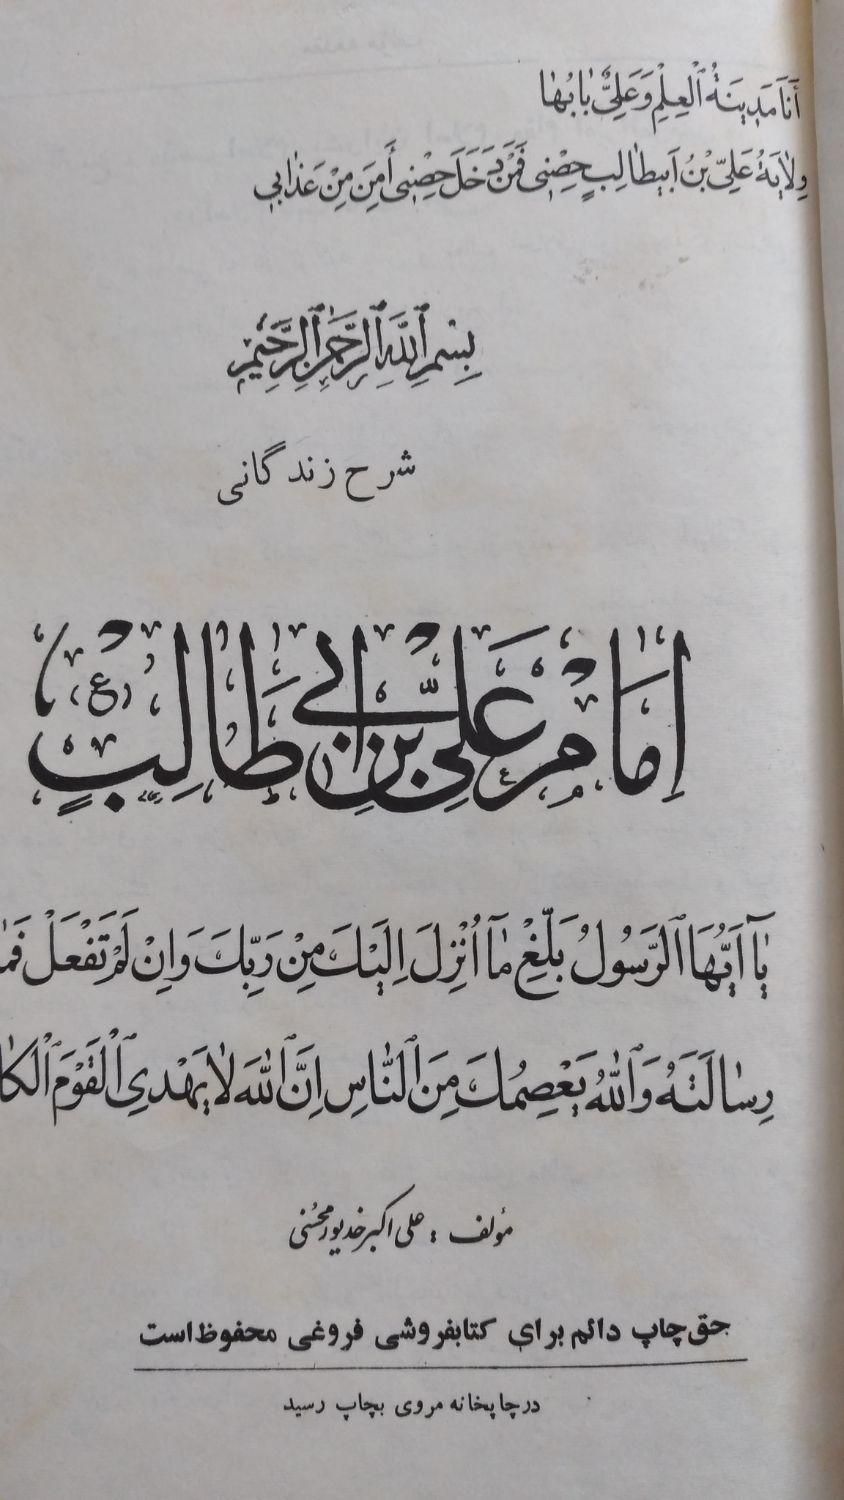 أَنَا مَدِینَةُ الْعِلْمِ وَعَلِیٌّ بٰابُهٰا
وِلٰایَةُ عَلِیِّ بْنِ اَبِیطٰالِبٍ حِصْنِی فَمَنْ دَخَلَ حِصْنِی أَمِنَ مِنْ عَذٰابِی
بِسْمِ اللَّهِ الرَّحْمٰنِ الرَّحِیْمِ
شرح زندگانی
اِمٰامْ عَلِیِّ بْنِ اَبِی طٰالِبٍ (ع)
یٰآ اَیُّهَا الرَّسُولُ بَلِّغْ مٰآ اُنْزِلَ اِلَیْكَ مِنْ رَبِّكَ وَاِنْ لَمْ تَفْعَلْ فَمٰا
رِسٰالَتَهُ وَاللّٰهُ یَعْصِمُكَ مِنَ النّٰاسِ اِنَّ اللّٰهَ لٰا یَهْدِی الْقَوْمَ الْکٰا
مؤلف : علی اکبر خدیور محسنی
حق چاپ دائم برای کتابفروشی فروغی محفوظ است
درچاپخانه مروی بچاپ رسید